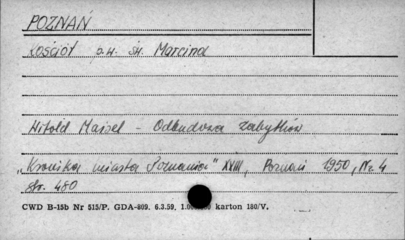 POZNAŃ
Kościół p.w. św. Marcina
Witold Maisel - Odbudowa zabytków
"Kronika miasta Poznania" XVIII, Poznań 1950, Nr. 4
str. 480
CWD B-15b Nr 515/P. GDA-809. 6.3.59, karton 180/V.